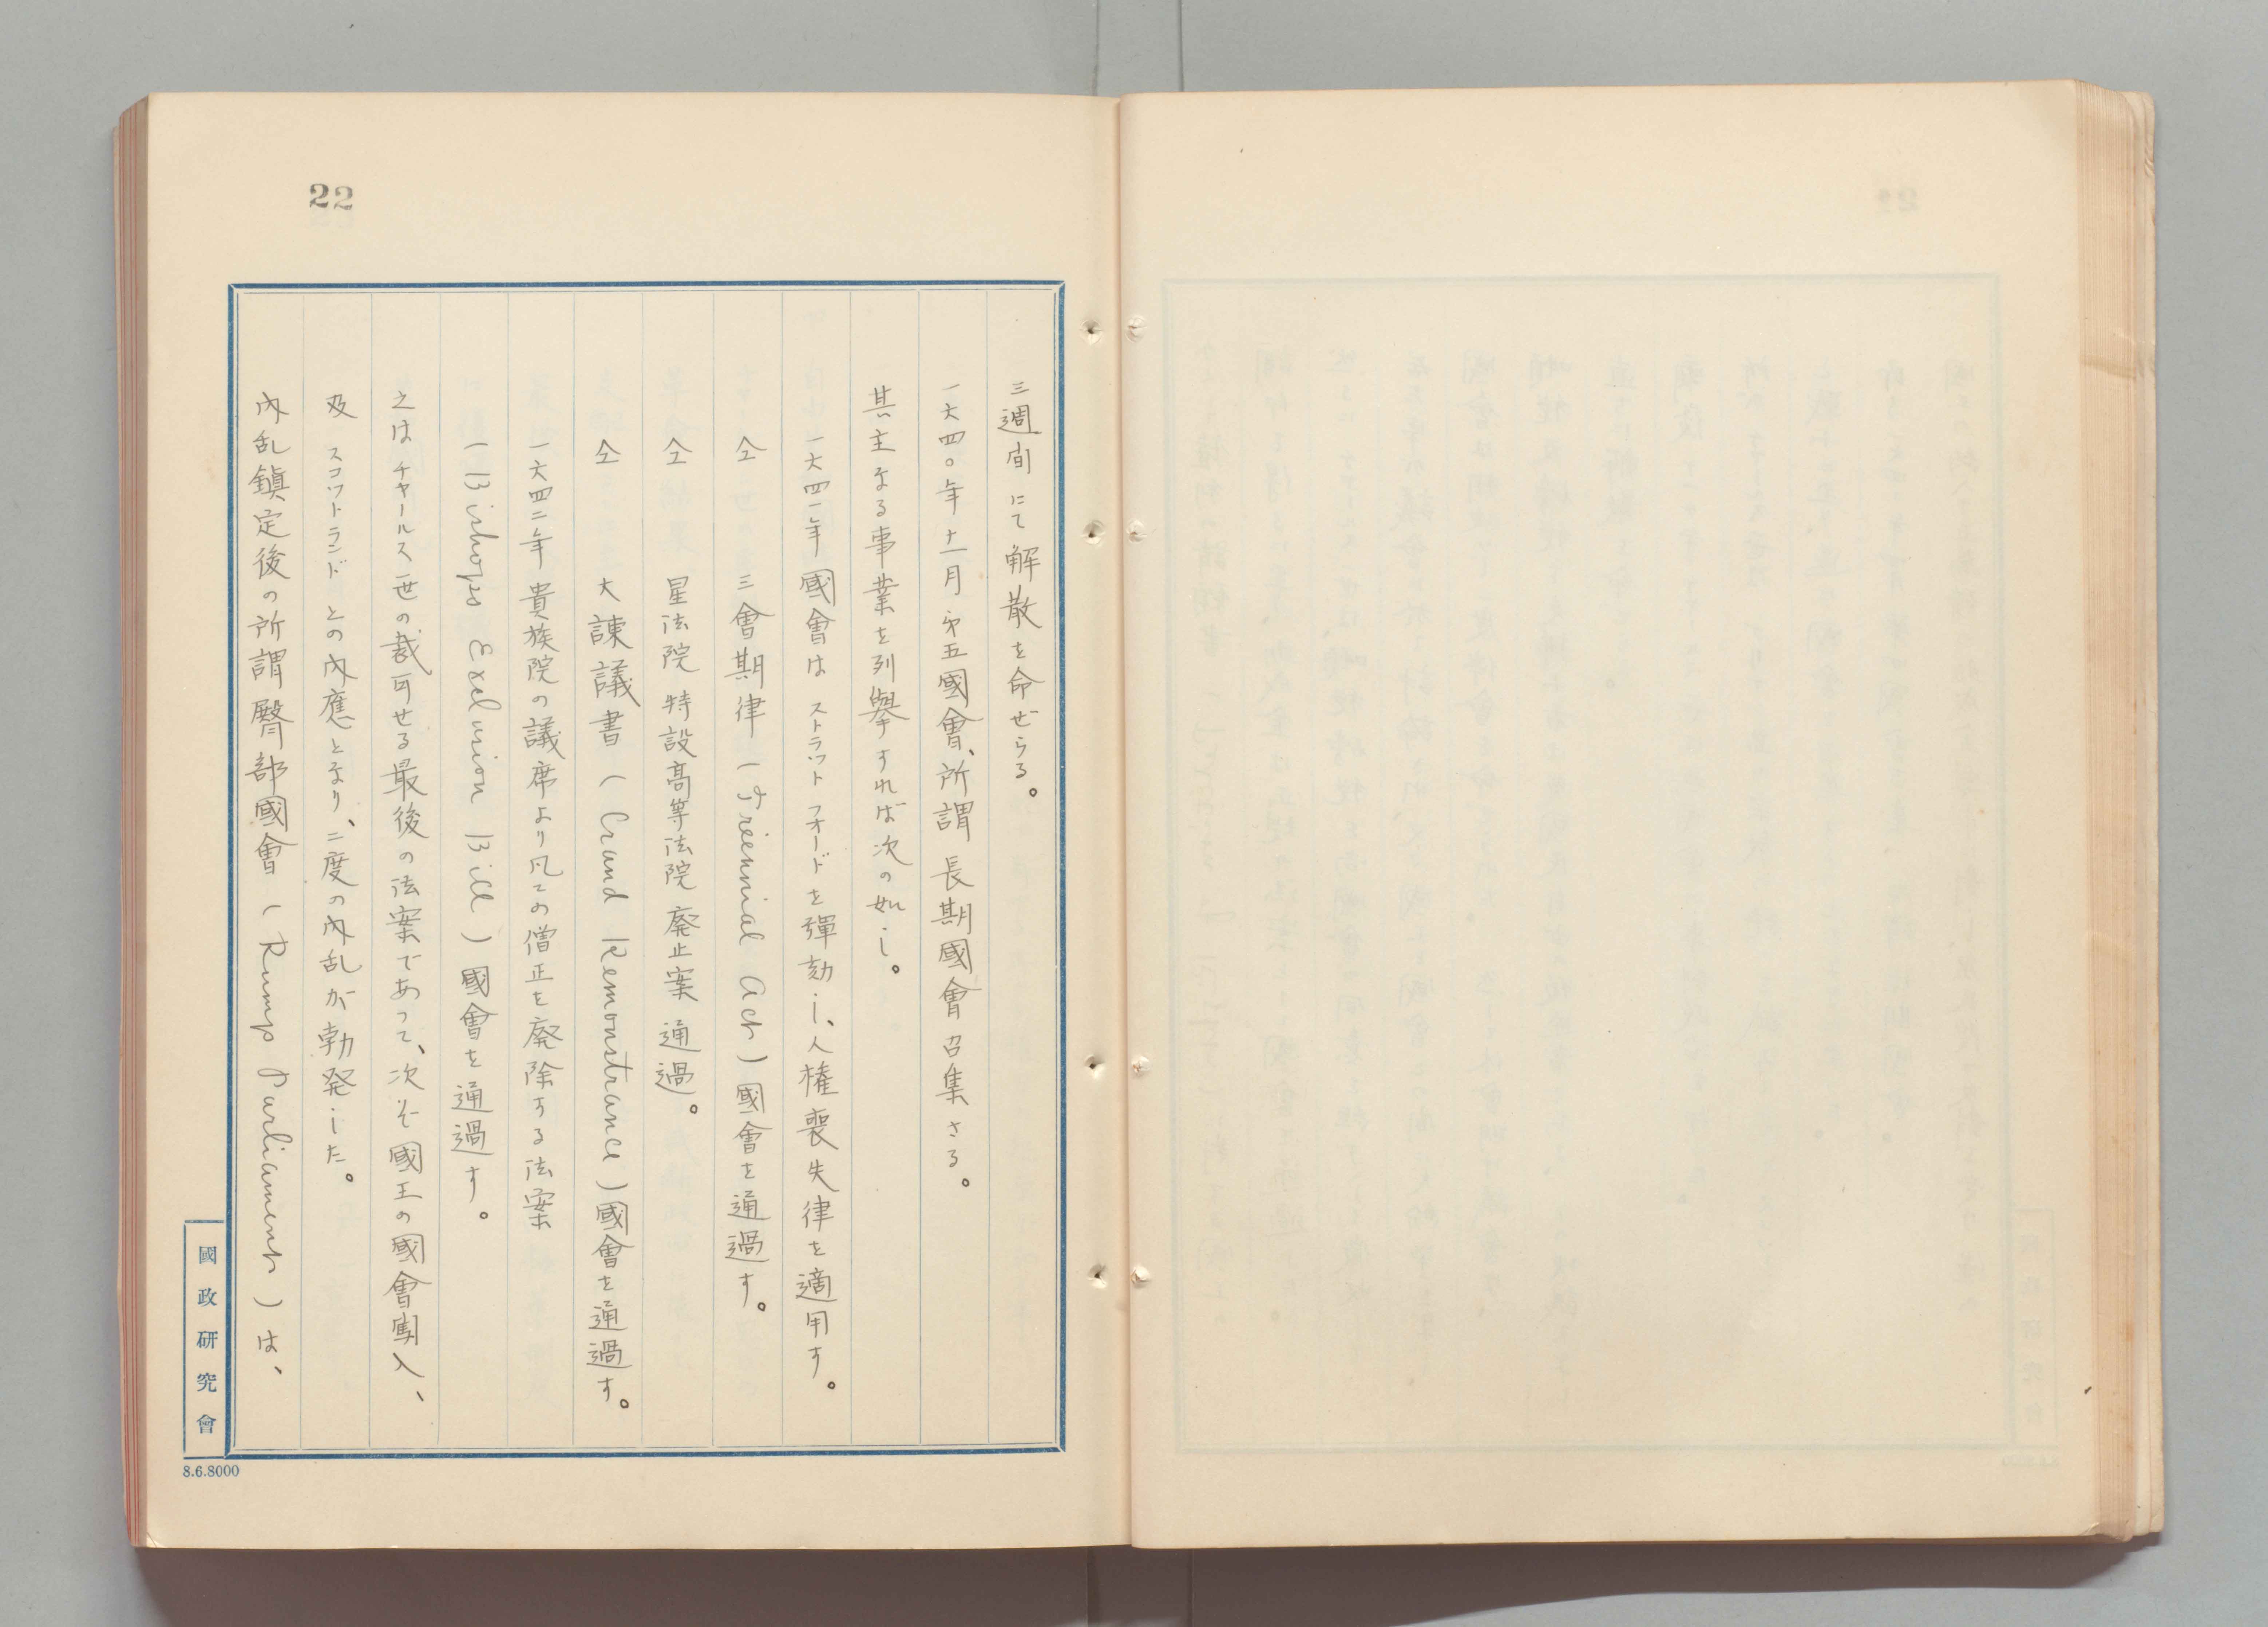 22
三週间にて解散を命ぜらる。
一六四〇年十一月 第五國會、所謂 長期國會 召集さる。
其主なる事業を列擧すれば次の如し。
一六四一年 國會は ストラットフォードを彈劾し、人権喪失律を適用す。
仝 三會期律 (Triennial Act) 國會を通過す。
仝 星法院 特設高等法院 廃止案 通過。
仝 大諌議書 (Grand Remonstrance) 國會を通過す。
一六四二年 貴族院の議席より凡ての僧正を廃除する法案
(Bishops Exclusion Bill) 國會を通過す。
之は チャールス一世の裁可せる最後の法案であつて、次で國王の國會闖入、
及 スコットランドとの内應となり、二度の内乱が勃発した。
内乱鎮定後の所謂臀部國會 (Rump Parliament) は、
國政研究會
8.6.8000